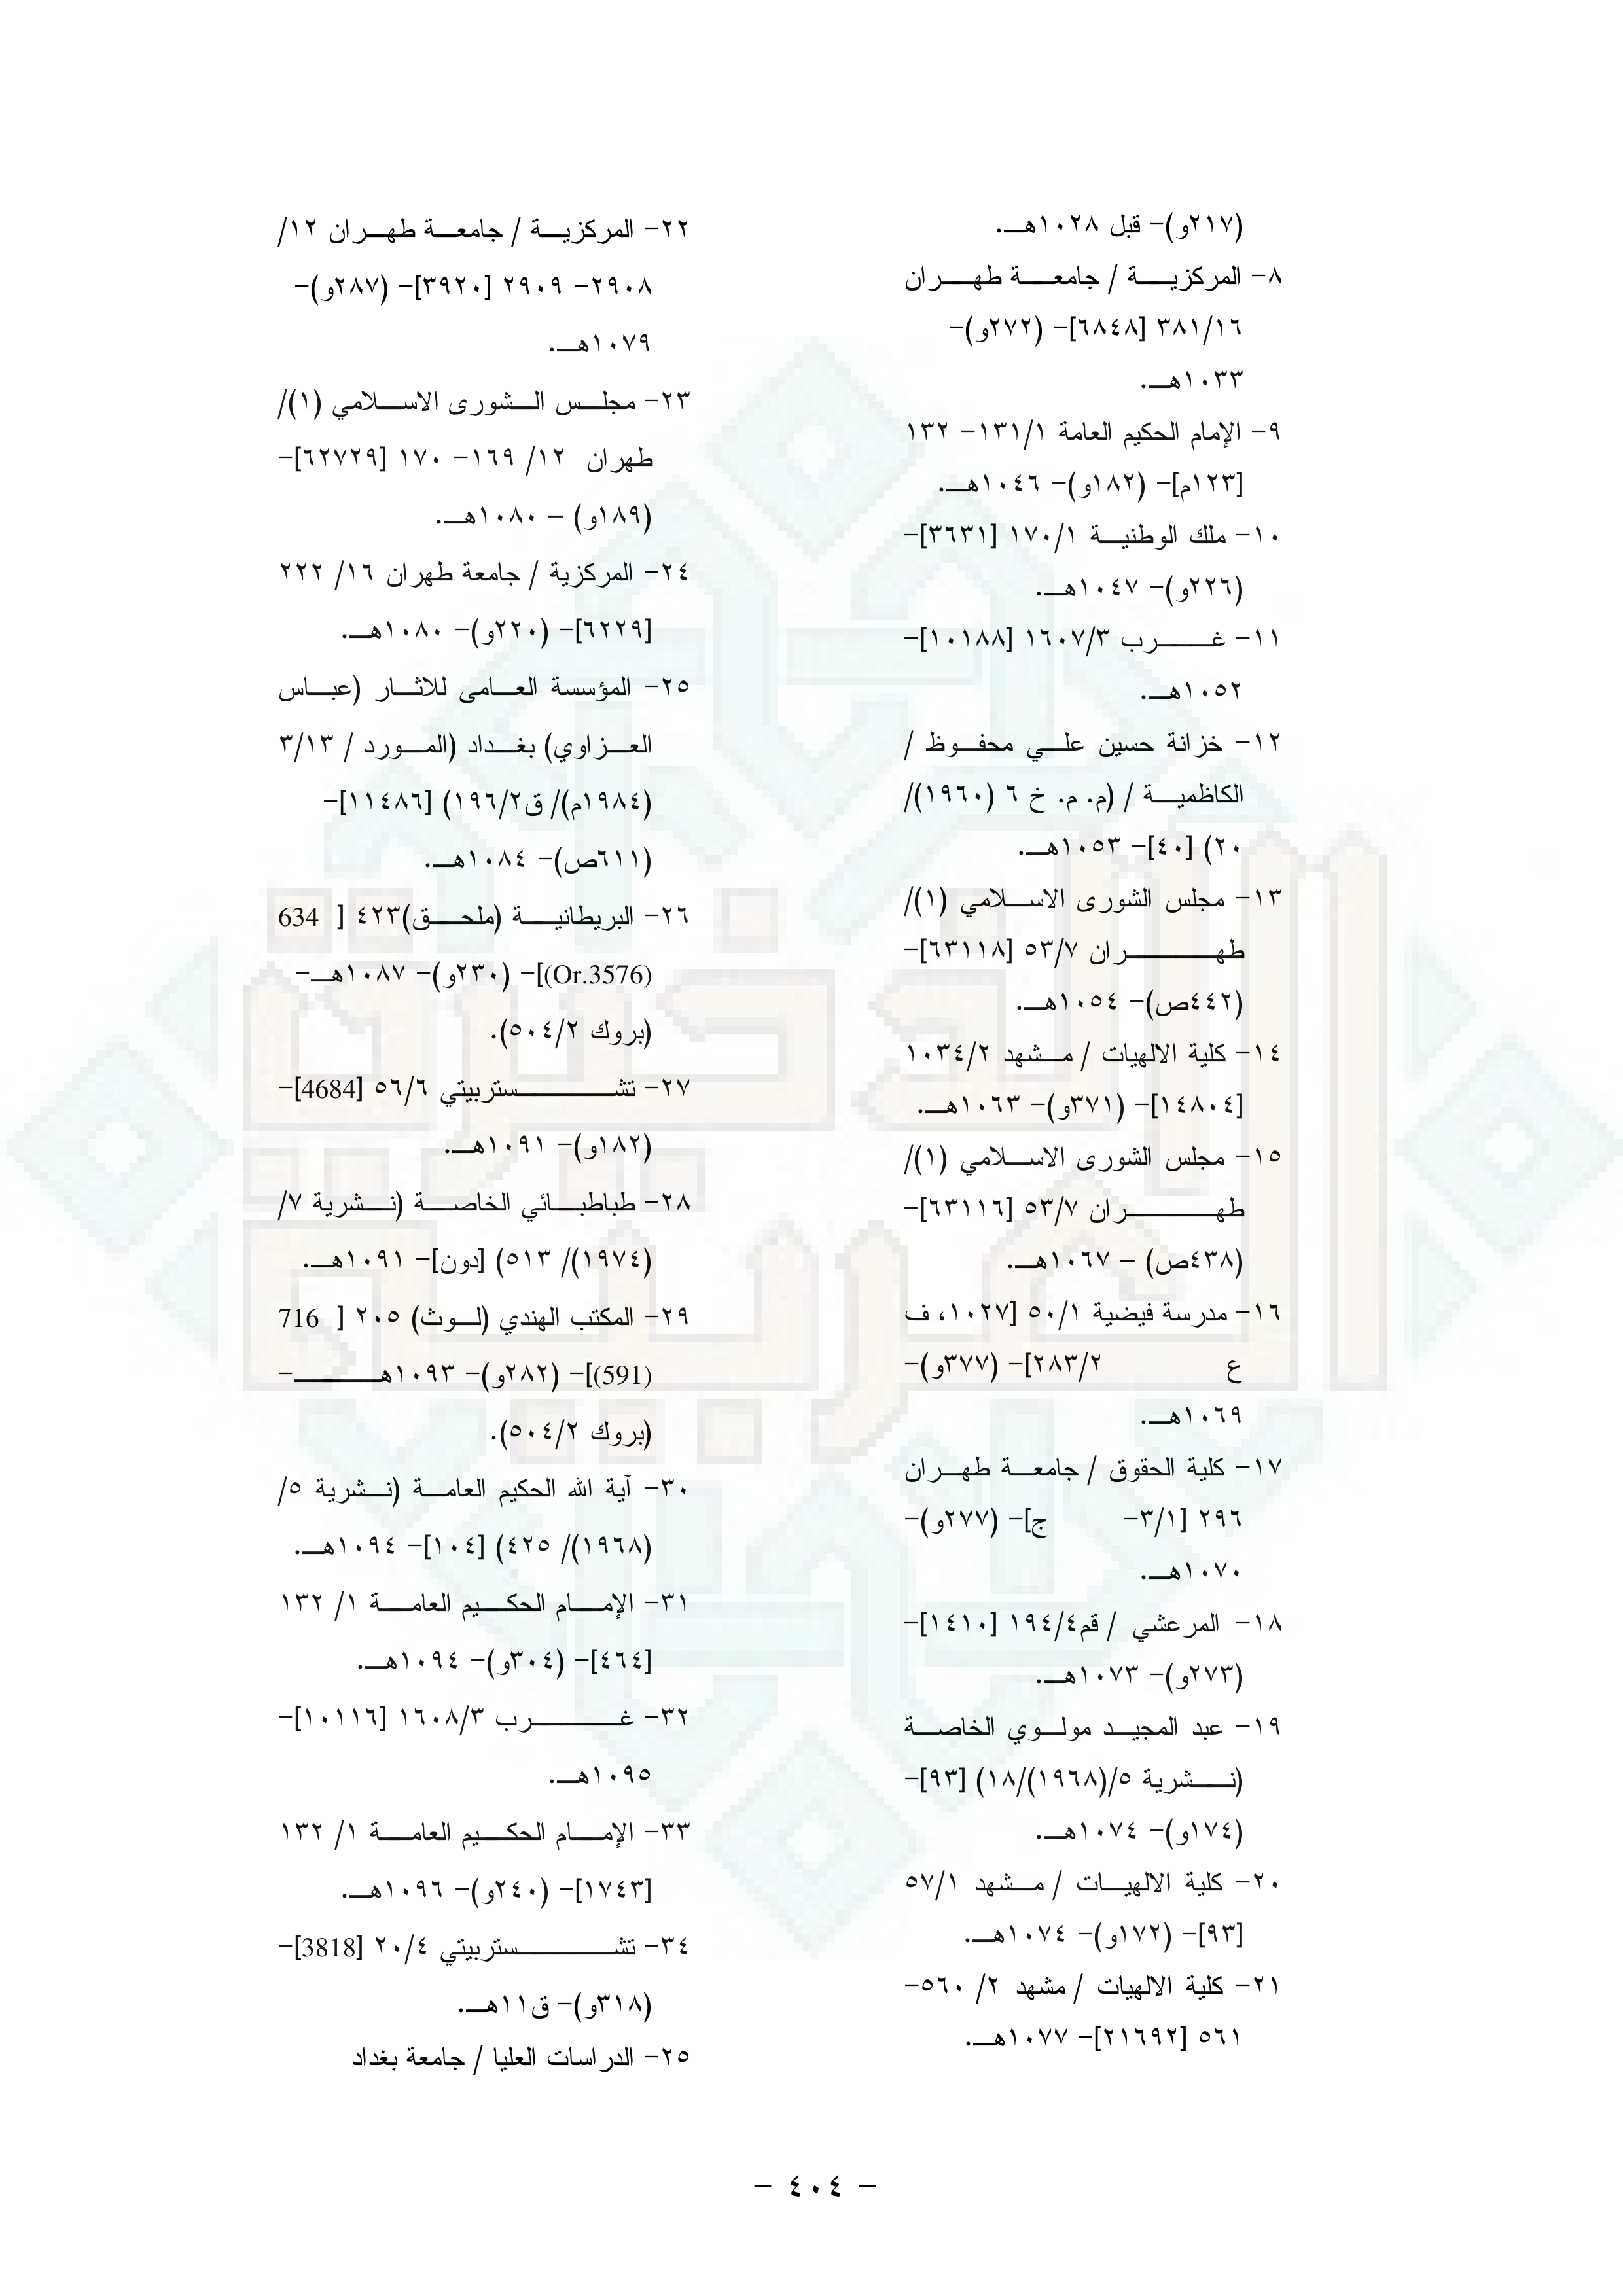 (٢١٧و)- قبل ١٠٢٨هـ.
٨- المركزية / جامعة طهران
٣٨١/١٦ [٦٨٤٨]- (٢٧٢و)-
١٠٣٣هـ.
٩- الإمام الحكيم العامة ١٣١/١- ١٣٢
[١٢٣م]- (١٨٢و)- ١٠٤٦هـ.
١٠- ملك الوطنية ١٧٠/١ [٣٦٣١]-
(٢٢٦و)- ١٠٤٧هـ.
١١- غرب ١٦٠٧/٣ [١٠١٨٨]-
١٠٥٢هـ.
١٢- خزانة حسين علي محفوظ /
الكاظمية / (م. م. خ ٦ (١٩٦٠)/
٢٠) [٤٠]- ١٠٥٣هـ.
١٣- مجلس الشورى الاسلامي (١)/
طهران ٥٣/٧ [٦٣١١٨]-
(٤٤٢ص)- ١٠٥٤هـ.
١٤- كلية الالهيات / مشهد ١٠٣٤/٢
[١٤٨٠٤]- (٣٧١و)- ١٠٦٣هـ.
١٥- مجلس الشورى الاسلامي (١)/
طهران ٥٣/٧ [٦٣١١٦]-
(٤٣٨ص) – ١٠٦٧هـ.
١٦- مدرسة فيضية ٥٠/١ [١٠٢٧، ف
ع ٢٨٣/٢]- (٣٧٧و)-
١٠٦٩هـ.
١٧- كلية الحقوق / جامعة طهران
٢٩٦ [٣/١- ج]- (٢٧٧و)-
١٠٧٠هـ.
١٨- المرعشي / قم١٩٤/٤ [١٤١٠]-
(٢٧٣و)- ١٠٧٣هـ.
١٩- عبد المجيد مولوي الخاصة
(نشرية ٥/(١٩٦٨)/١٨) [٩٣]-
(١٧٤و)- ١٠٧٤هـ.
٢٠- كلية الالهيات / مشهد ٥٧/١
[٩٣]- (١٧٢و)- ١٠٧٤هـ.
٢١- كلية الالهيات / مشهد ٢/ ٥٦٠-
٥٦١ [٢١٦٩٢]- ١٠٧٧هـ.
٢٢- المركزية / جامعة طهران ١٢/
٢٩٠٨- ٢٩٠٩ [٣٩٢٠]- (٢٨٧و)-
١٠٧٩هـ.
٢٣- مجلس الشورى الاسلامي (١)/
طهران ١٢/ ١٦٩- ١٧٠ [٦٢٧٢٩]-
(١٨٩و) – ١٠٨٠هـ.
٢٤- المركزية / جامعة طهران ١٦/ ٢٢٢
[٦٢٢٩]- (٢٢٠و)- ١٠٨٠هـ.
٢٥- المؤسسة العامى للاثار (عباس
العزاوي) بغداد (المورد / ٣/١٣
(١٩٨٤م)/ ق١٩٦/٢) [١١٤٨٦]-
(٦١١ص)- ١٠٨٤هـ.
٢٦- البريطانية (ملحق)٤٢٣ [ 634
(Or.3576)]- (٢٣٠و)- ١٠٨٧هـ-
(بروك ٥٠٤/٢).
٢٧- تشستربيتي ٥٦/٦ [4684]-
(١٨٢و)- ١٠٩١هـ.
٢٨- طباطبائي الخاصة (نشرية ٧/
(١٩٧٤)/ ٥١٣) [دون]- ١٠٩١هـ.
٢٩- المكتب الهندي (لوث) ٢٠٥ [ 716
(591)]- (٢٨٢و)- ١٠٩٣هـ-
(بروك ٥٠٤/٢).
٣٠- آية الله الحكيم العامة (نشرية ٥/
(١٩٦٨)/ ٤٢٥) [١٠٤]- ١٠٩٤هـ.
٣١- الإمام الحكيم العامة ١/ ١٣٢
[٤٦٤]- (٣٠٤و)- ١٠٩٤هـ.
٣٢- غرب ١٦٠٨/٣ [١٠١١٦]-
١٠٩٥هـ.
٣٣- الإمام الحكيم العامة ١/ ١٣٢
[١٧٤٣]- (٢٤٠و)- ١٠٩٦هـ.
٣٤- تشستربيتي ٢٠/٤ [3818]-
(٣١٨و)- ق١١هـ.
٢٥- الدراسات العليا / جامعة بغداد
- ٤٠٤ -